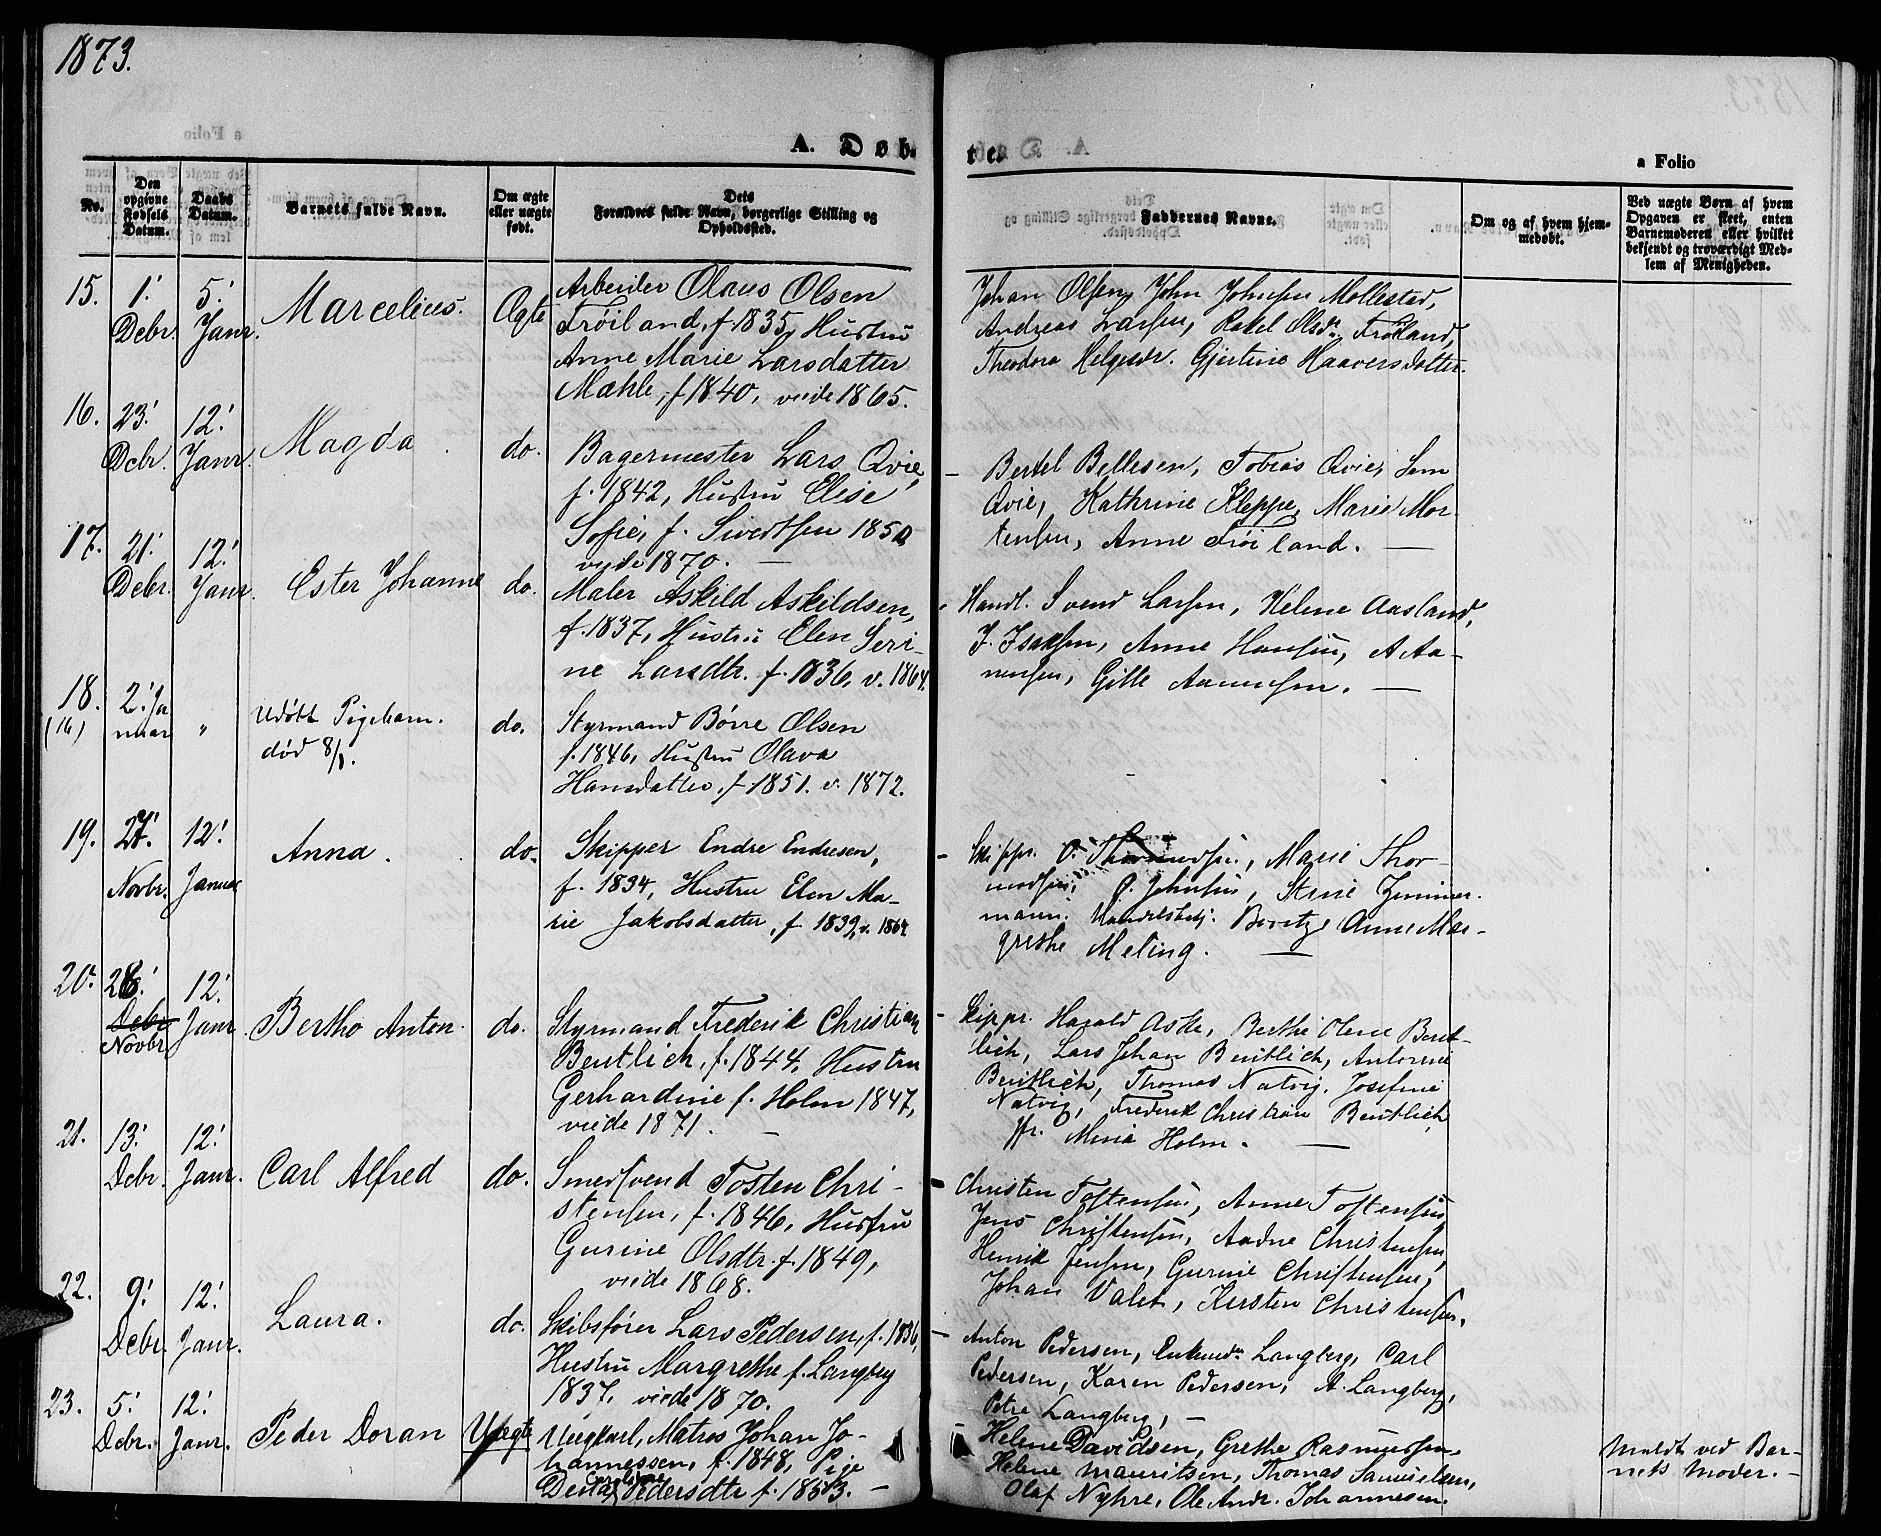 1873.
A. Døb-
te.
a Folio
No.
Den opgivne Fødsels Datum.
Daabs Datum.
Barnets fulde Navn.
Om ægte eller uægte født.
Dets Forældres fulde Navn, borgerlige Stilling og Opholdssted.
Faddernes Navne.
Om og af hvem hjemmedøbt.
Ved uægte Børn af hvem
Opgaven er skeet, enten
Barnemoderen eller hvilket
bekjendt og troværdigt Med-
lem af Menigheden.
15.
1'
Debr.
5'
Janr.
Marcelius.
Ægte
Arbeider Olaus Olsen
Frøiland, f. 1835, Hustru
Anne Marie Larsdatter
Mæhle, f 1840, viede 1865.
Johan Olsen, John Johnsen Mollestad,
Andreas Larsen, Rakel Olsdr. Frøiland,
Theodora Helgesdr. Gjertine Haaversdatter.
16.
23'
Debr.
12'
Janr.
Magda
do.
Bagermester Lars Qvie,
f. 1842, Hustru Elise
Sofie, f. Sivertsen 1850
viede 1870. —
Bertel Bellesen, Tobias Qvie, Sem
Qvie, Kathrine Kleppe, Marie Mor
tensen, Anne Frøiland. —
17.
21'
Debr.
12'
Janr.
Ester Johanne
do.
Maler Askild Askildsen,
f. 1837, Hustru Elen Seri-
ne Larsdtr. f. 1836, v. 1864.
Handl. Svend Larsen, Helene Aasland,
J. Isaksen, Anne Hansen, A Aa-
nensen, Gitle Aanensen. —
18.
(16)
2' Ja
nuar
"
Udøbt Pigebarn.
død 8/1.
do.
Styrmand Børre Olsen
f. 1846, Hustru Olava
Hansdatter, f 1851. v. 1872.
19.
27'
Novbr.
12'
Januar
Anna.
do.
Skipper Endre Endresen,
f. 1834, Hustru Elen Ma-
rie Jakobsdatter, f 1839, v. 1864
Skippr. O. Thormodsen, Marie Thor-
modsen, O. Johnsen, Stine Zimmer-
mann. Handelsbetj. Boritz, Anne Mar-
grethe Meling. —
20.
28'
Debr
Novbr
12'
Janr.
Bertho Anton.
do.
Styrmand Frederik Christian
Bentlich, f. 1844, Hustru
Gerhardine f. Holm 1847,
viede 1871. —
Skippr. Harald Aske, Berthe Olene Bent-
lich, Lars Johan Bentlich, Antonie
Bentlich, Thomas Natvig, Josefine
Natvig, Frederik Christian Bentlich
Jfr. Mina Holm. —
21.
13'
Debr.
12'
Janr.
Carl Alfred
do.
Smedsvend Tosten Chri-
stensen, f. 1846, Hustru
Gurine Olsdtr. f. 1849,
viede 1868.
Christen Tostensen, Anne Tostensen
Jens Christensen, Aadne Christensen,
Henrik Jensen, Gurine Christensen,
Johan Valet, Kirsten Christensen.
22.
9'
Debr.
12'
Janr.
Laura.
do.
Skibsfører Lars Pedersen, f. 1836,
Hustru Margrethe f. Langberg
1837, viede 1870.
Anton Pedersen, Langberg, Carl
Pedersen, Karen Pedersen, A. Langberg,
Petra Langberg, —
23.
5'
Debr.
12'
Janr.
Peder Doran
Uægte
Ungkarl, Matros Johan Jo-
hannessen, f. 1848, Pige
Caroline
Pedersdtr f. 1853. —
Helene Davidsen, Grethe Rasmussen,
Helene Mauritsen, Thomas Samuelsen,
Olaf Nyhre, Ole Andr. Johannesen.
Meldt ved Bar-
nets Moder. —